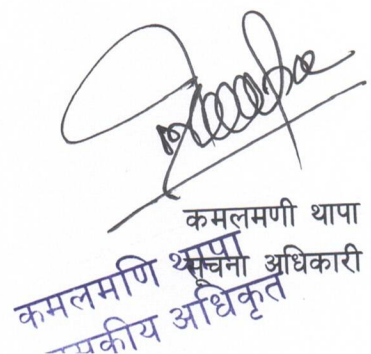 कमलमणी थापा
सूचना अधिकारी
कमलमणि थापा
अधिकृत